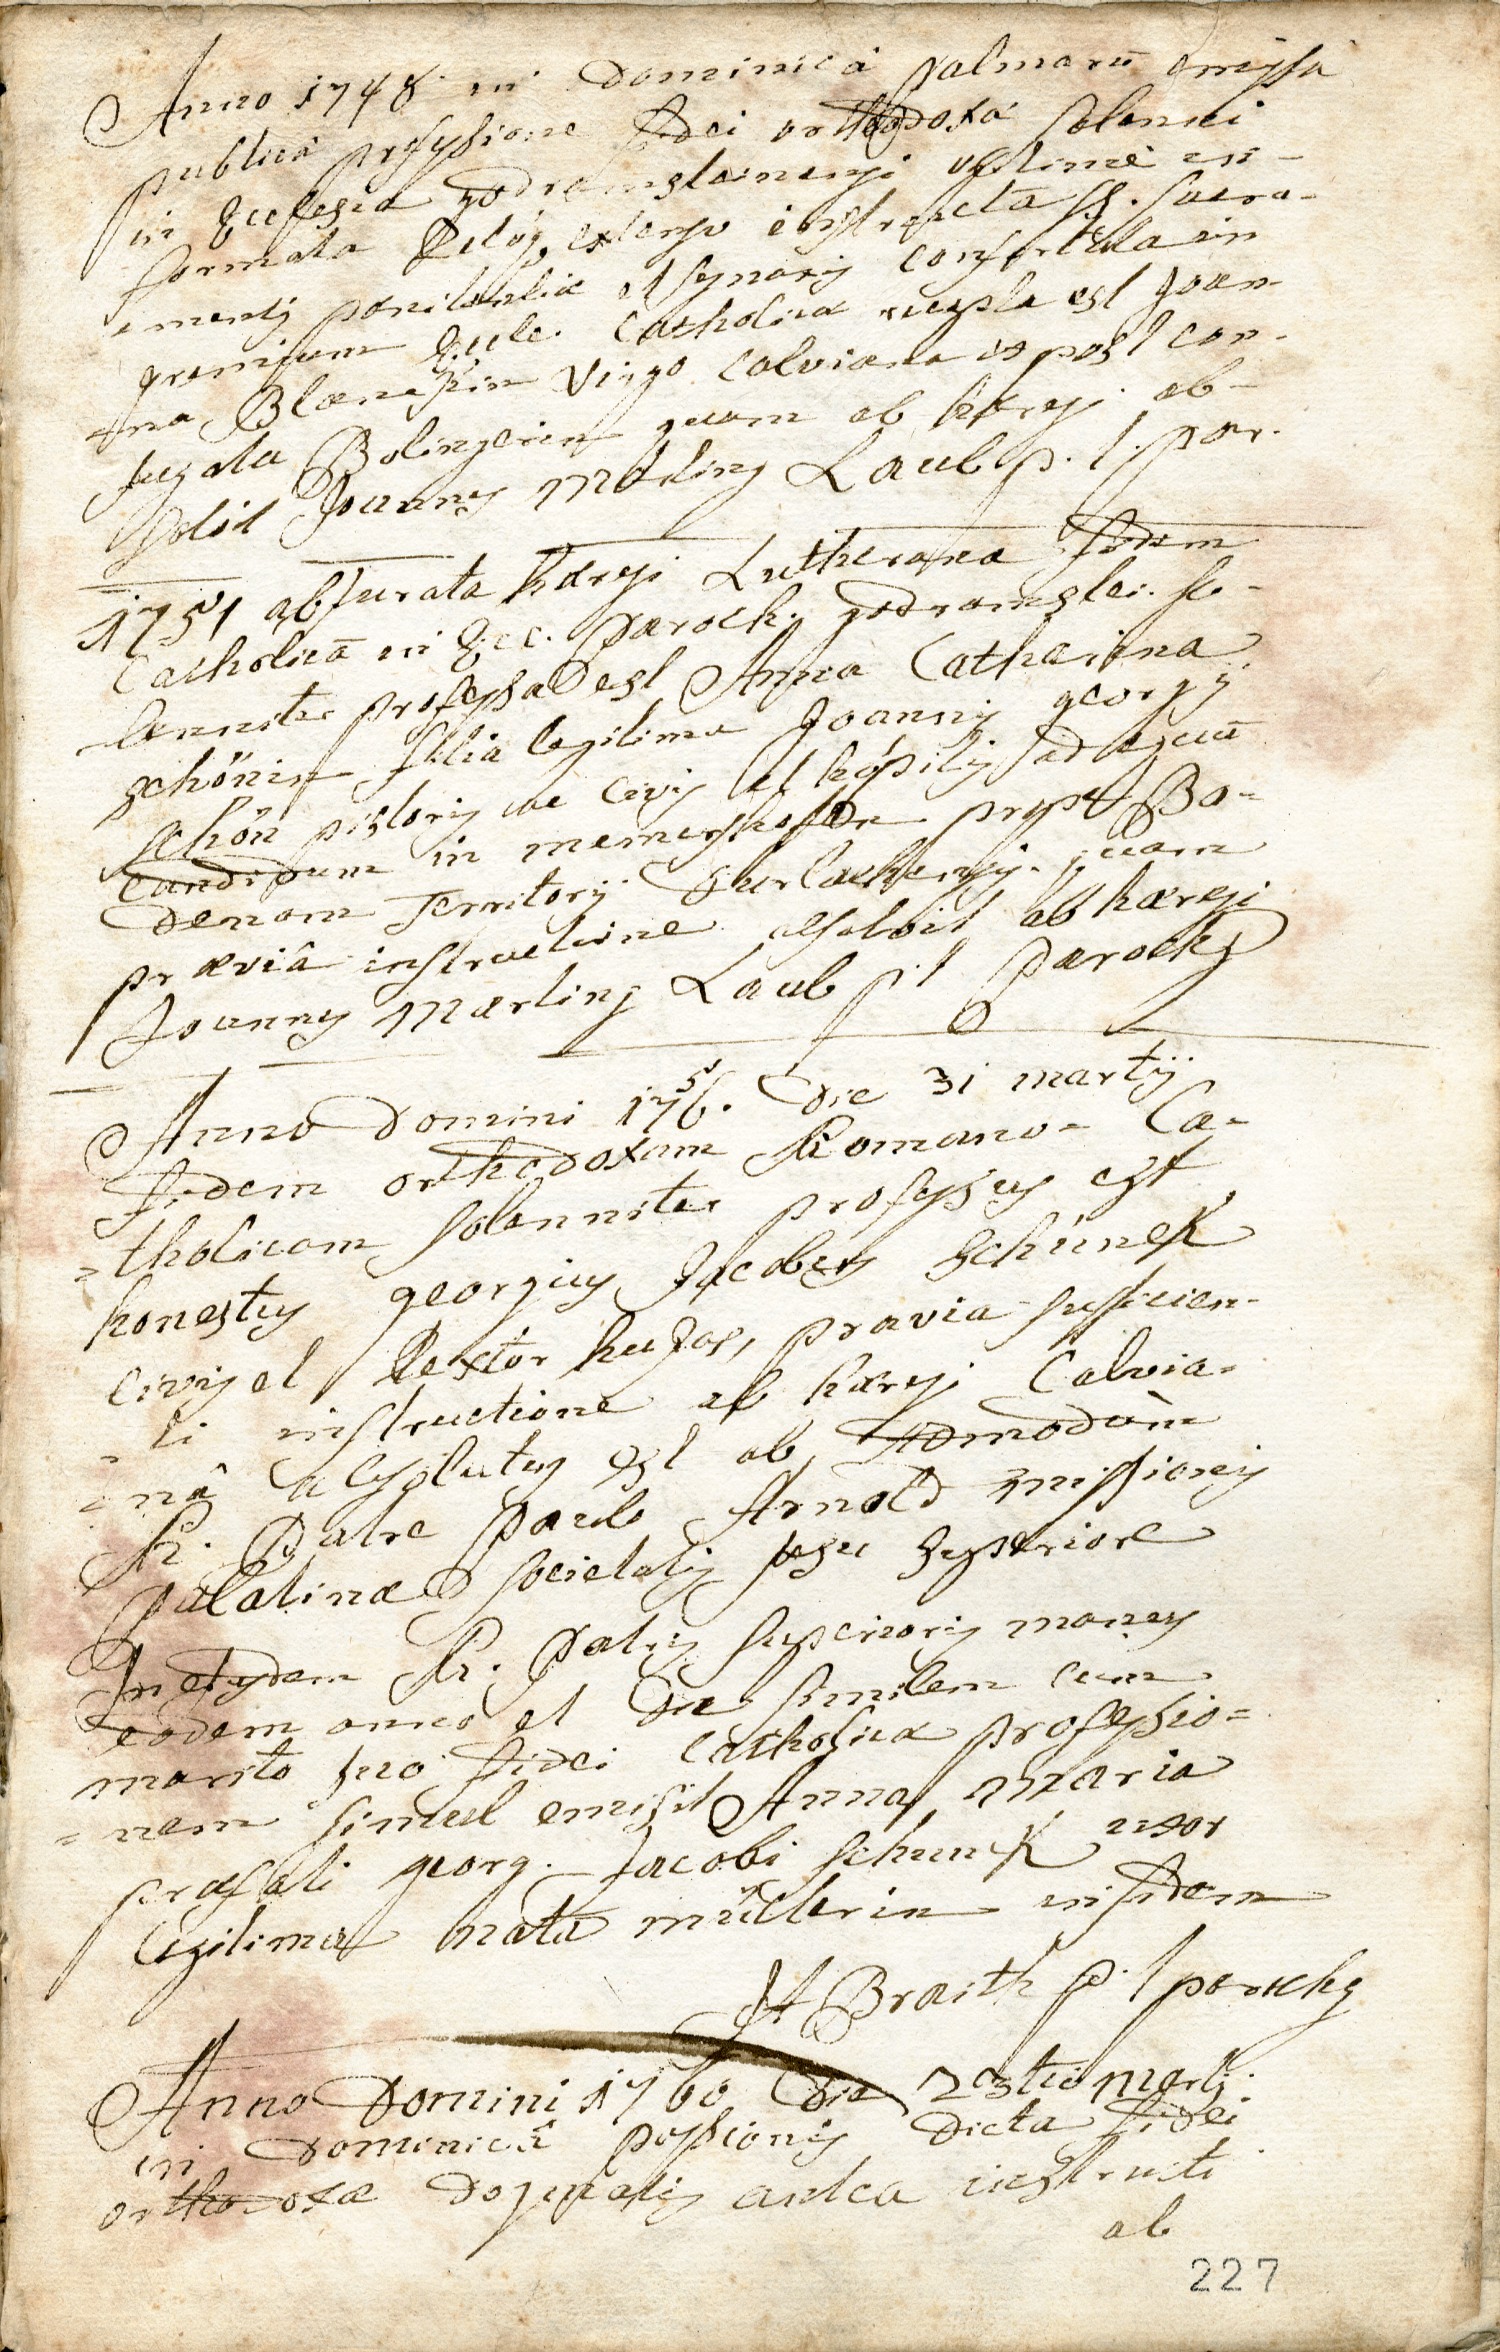 Anno 1748 in Dominicâ palmarū emissa
publicâ professione fidei orthodoxæ solenni
in Ecclesia godramsteinensi optimè in-
formata instructa SS. Sacra-
mentis pœnitentiæ et Synaxis confortata in
gremium Eccle. Catholicæ recepta est Joan-
na Virgo Calviana post con-
jugata Bolingerin quam ab hæresi ab-
solvit Joannes Martinus Laub p. t. par.
1751 abjurata hæresi Lutherana fidem
Catholicā in Ecc. Paroch. godramstei. so-
lenniter professa est Anna Catharina
schönin filia legitima Joannis georgij
schön pistoris ac civis et hospitis ad equū
candidum in prope Ba-
denam Territorij Durlacensis. quam
præviâ instructione absolvit ab hæresi
Joannes Martinus Laub p. t. parochus
Anno Domini 1756. Die 31 martij
fidem orthodoxam Romano- Ca-
=tholicam solenniter professus est
honestus georgius Jacobus schünek
civis et textor hujas, prævia sufficien-
=ti instructione ab hæresi Calvia-
=nâ absolutus est ab Admodùm
R. Patre Paulo Arnold missionis
palatinæ societatis Jesu superiore
In ejusdem R. Patris superioris manus
eodem anno et die similem cum
marito suo fidei catholicæ professio=
=nem simul emisit Anna Maria
præfati georg. Jacobi schunk uxor
legitima nata müllerin in fidem
JA Braith p. t parochus
Anno Domini 1760 Die 23tio martij
in Dominicâ passionis dicta fidei
orthodoxæ dogmatis antea instructi
ab
227